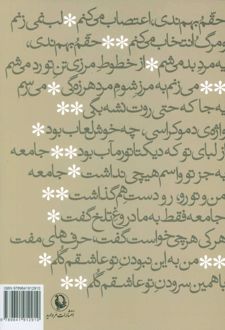 حقمُ بهم ندی، اعتصاب می‌کنم * لب نمی‌زنم
و مرگُ انتخاب می‌کنم ** حقمُ بهم ندی،
یه مرد بد می‌شم * از خطوط مرزی تنِ تو رد می‌شم
** می‌زنم به مرز شوم مرد هرزگی * می‌رسم
به جا که حتی روت نشه بگی **
واژه‌ی دموکراسی، چه خوش‌لعاب بود *
از لبای تو که دیکتاتور مآب بود ** جامعه
به جز تو واسم هیچی نداشت *
من و تو رو، رو دست هم گذاشت **
جامعه فقط به ما دروغ تلخ گفت *
هر کی هر چی خواست گفت، حرف‌های مفت
** من به این نبودنِ تو عاشقم گلم *
با همین سرودنِ تو عاشقم گلم **
انتشارات مروارید